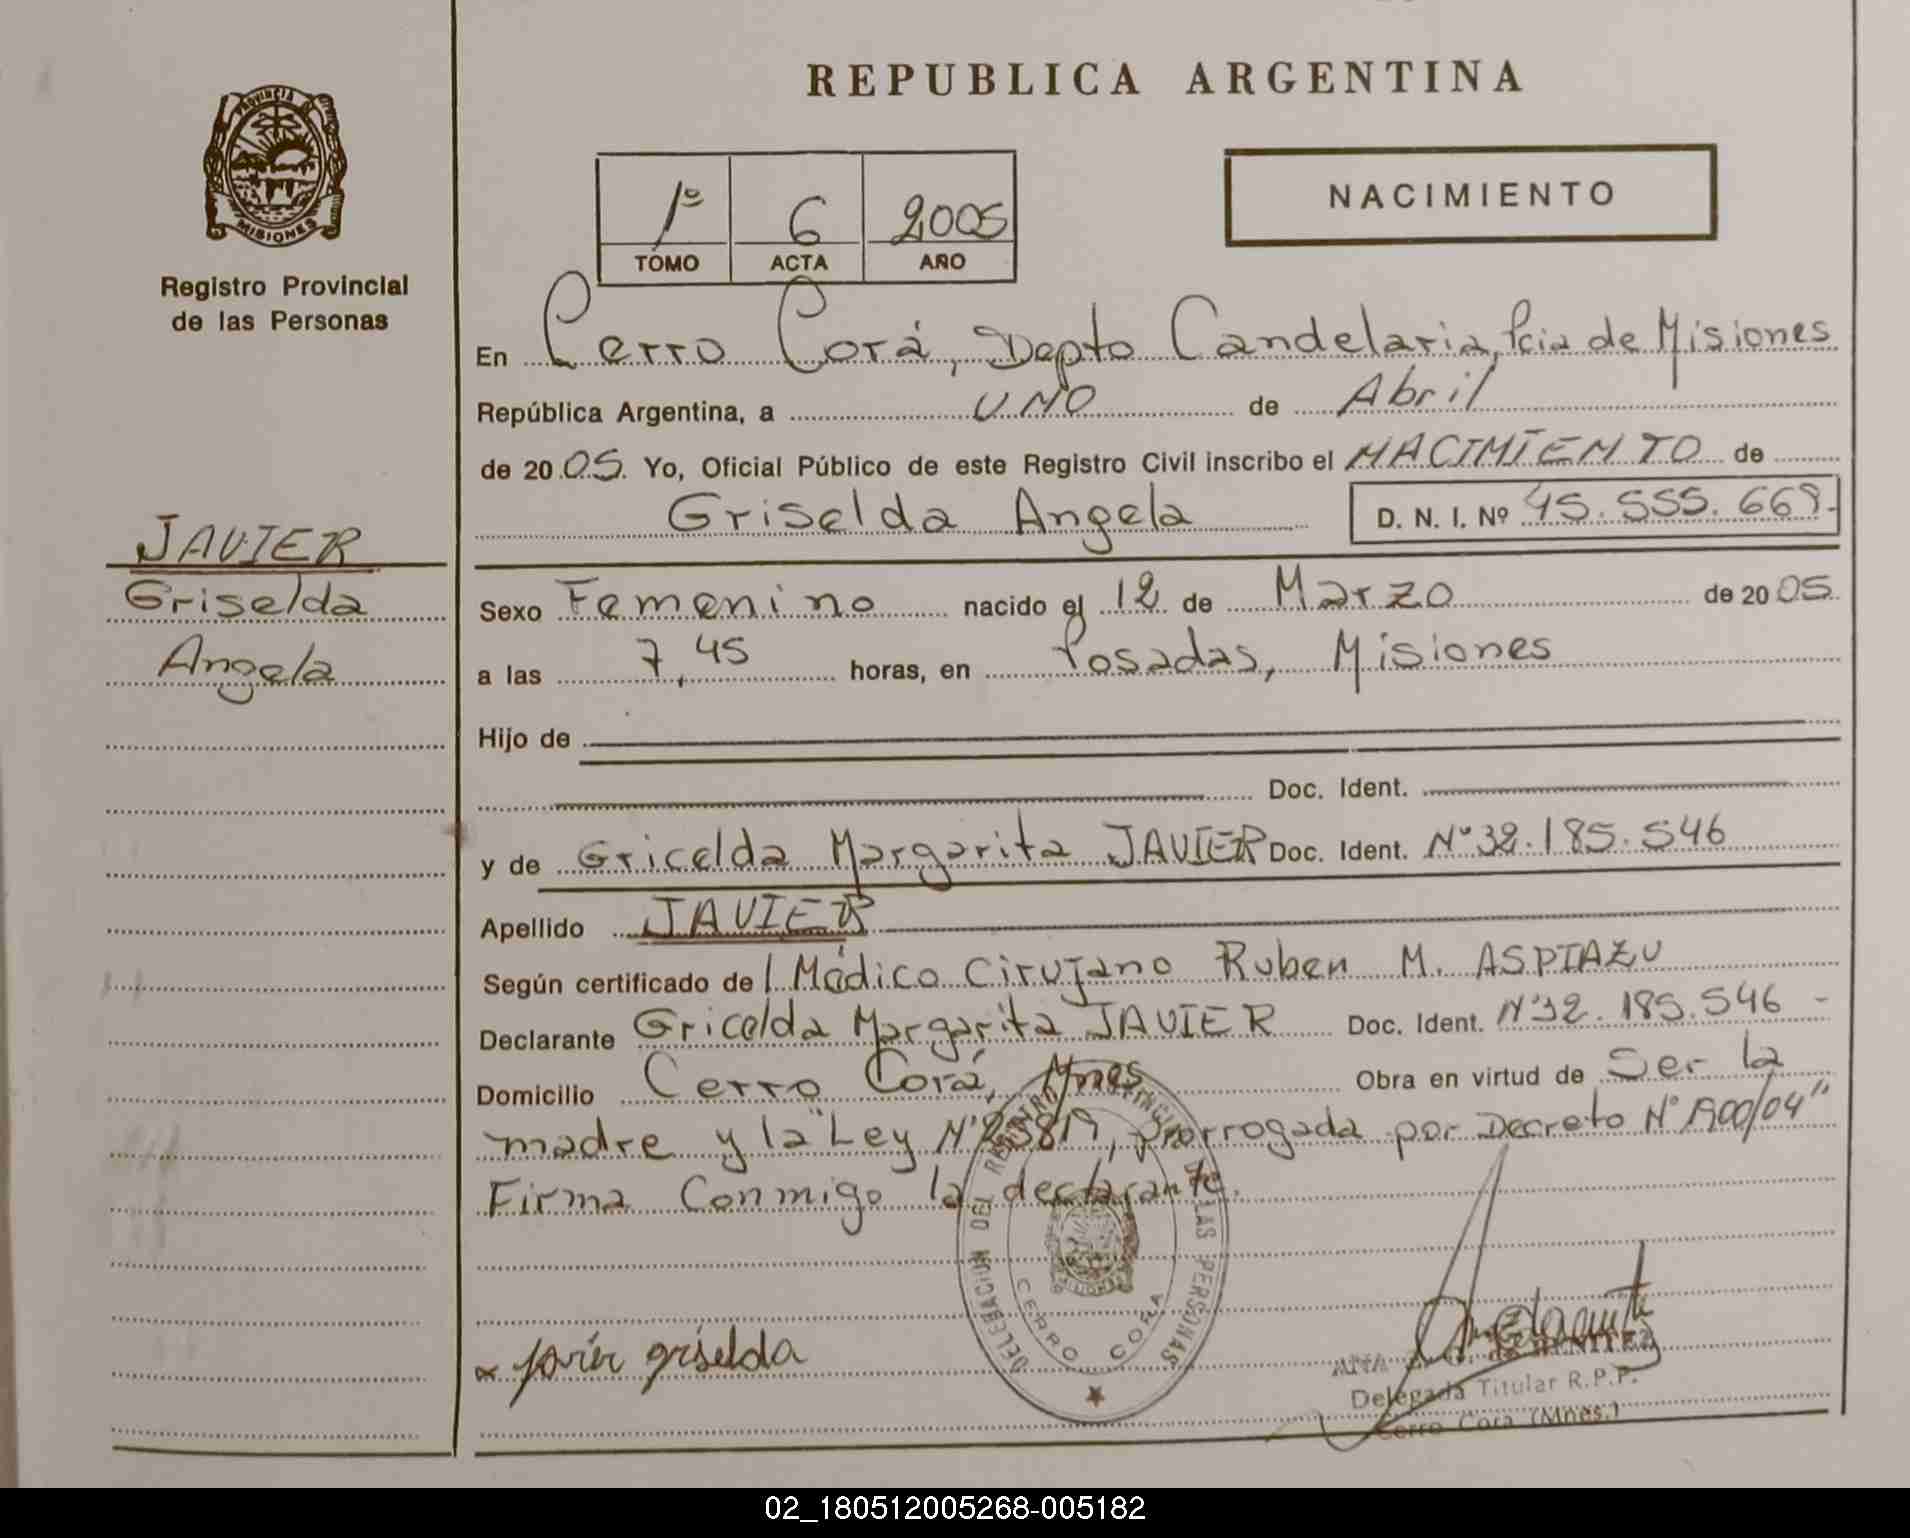 REPUBLICA ARGENTINA
PROVINCIA DE
MISIONES
Registro Provincial
de las Personas
1º 6 2005
TOMO ACTA AÑO
NACIMIENTO
En Cerro Corá, Depto Candelaria, Pcia de Misiones
República Argentina, a UNO de Abril
de 2005. Yo, Oficial Público de este Registro Civil inscribo el NACIMIENTO de
Griselda Angela D. N. I. Nº 45.555.669.-
JAVIER
Griselda
Angela
Sexo Femenino nacido el 12 de Marzo de 2005.
a las 7,45 horas, en Posadas, Misiones
Hijo de
Doc. Ident.
y de Gricelda Margarita JAVIER Doc. Ident. Nº 32.185.546
Apellido JAVIER
Según certificado de l Médico Cirujano Ruben M. ASPIAZU
Declarante Gricelda Margarita JAVIER Doc. Ident. Nº 32.185.546 -
Domicilio Cerro Corá, Mnes Obra en virtud de Ser la
madre y la "Ley Nº 25819, prorrogada por Decreto Nº 1900/04"
Firma Conmigo la declarante.
DELEGACION DEL REGISTRO PROVINCIAL DE LAS PERSONAS
CERRO CORA
Javier griselda
ANA de BENITEZ
Delegada Titular R.P.P.
Cerro Cora (Mnes.)
02_180512005268-005182